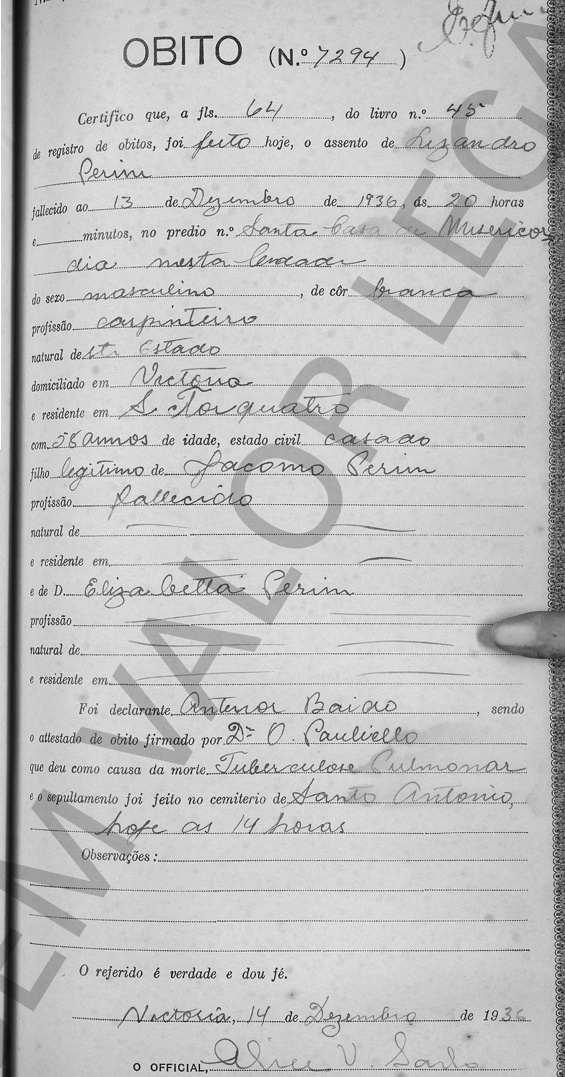 OBITO (N.º 7294)
Certifico que, a fls. 64, do livro n.º 45
de registro de obitos, foi feito hoje, o assento de Lizandro
Perim
fallecido ao 13 de Dezembro de 1936, ás 20 horas
e minutos, no predio n.º Santa Casa de Misericor
dia nesta
do sexo masculino, de côr branca
profissão carpinteiro
natural deste Estado
domiciliado em Victoria
e residente em S. Torquatro
com 58 annos de idade, estado civil casado
filho legitimo de Jacomo Perim
profissão fallecido
natural de
e residente em
e de D. Eliza betta Perim
profissão
natural de
e residente em
Foi declarante, Antenor Baião, sendo
o attestado de obito firmado por Dr O. Pauliello
que deu como causa da morte Tuberculose Pulmonar
e o sepultamento foi feito no cemiterio de Santo Antonio,
hoje as 14 horas
Observações:
O referido é verdade e dou fé.
Victoria, 14 de Dezembro de 1936
O OFFICIAL, Alice V.
SEM VALOR LEGAL